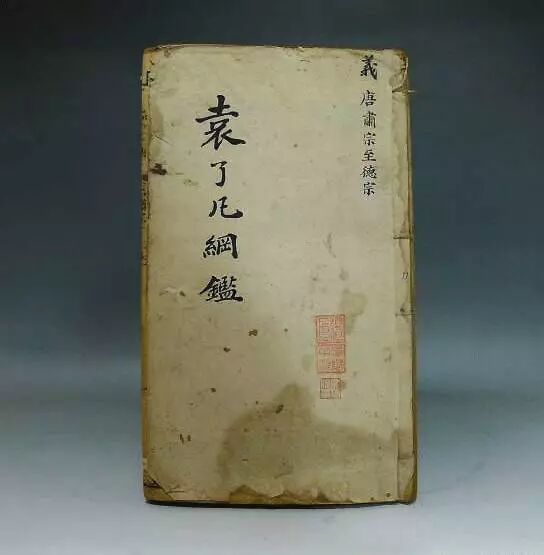 義 唐肅宗至德宗
袁了凡綱鑑